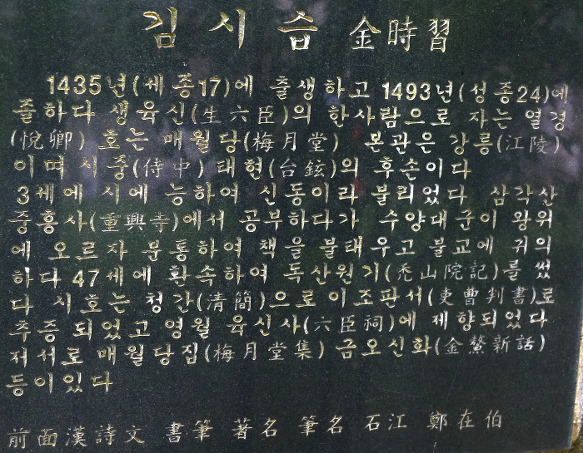 김시습 金時習
1435년(세종17)에 출생하고 1493년(성종24)에
졸하다 생육신(生六臣)의 한사람으로 자는 열경
(悅卿) 호는 매월당(梅月堂) 본관은 강릉(江陵)
이며 시중(侍中) 태현(台鉉)의 후손이다
3세에 시에 능하여 신동이라 불리었다 삼각산
중흥사(重興寺)에서 공부하다가 수양대군이 왕위
에 오르자 문통하여 책을 불태우고 불교에 귀의
하다 47세에 환속하여 독산원기(禿山院記)를 썼
다 시호는 청간(清簡)으로 이조판서(吏曹判書)로
추증 되었고 영월 육신사(六臣祠)에 제향되었다
저서로 매월당집(梅月堂集) 금오신화(金鰲新話)
등이있다
前面漢詩文 書筆 著名 筆名 石江 鄭在伯